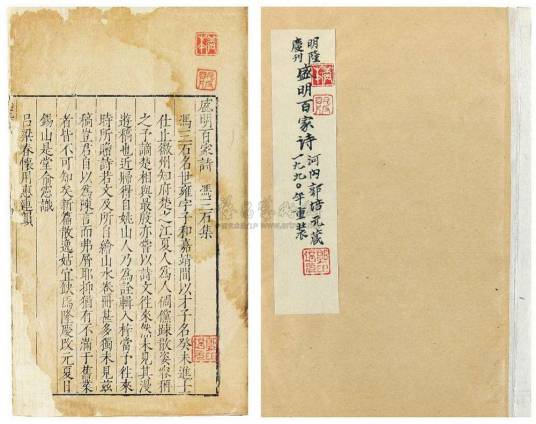 盛明百家詩　馮三石集
馮三石名世雍字子和嘉靖間以才子名癸未進士
仕止徽州知府楚之江夏人為人倜儻踈散姿容猶
之子謫楚相與最殷亦嘗以詩文往來然未見其漫
遊稿也近歸得自姚山人乃為詮輯入梓當予往來
時所贈詩若文及所自繪山水卷冊甚多獨未見茲
稿豈君自以為陳言而弗屑耶抑猶有不滿于舊業
者皆不可知矣新篇散逸姑宜缺焉隆慶改元夏日
錫山是堂俞憲識
呂梁春懷用惠連韻
明隆
慶刊
盛明百家诗
河内郭培元藏
一九九〇年重装